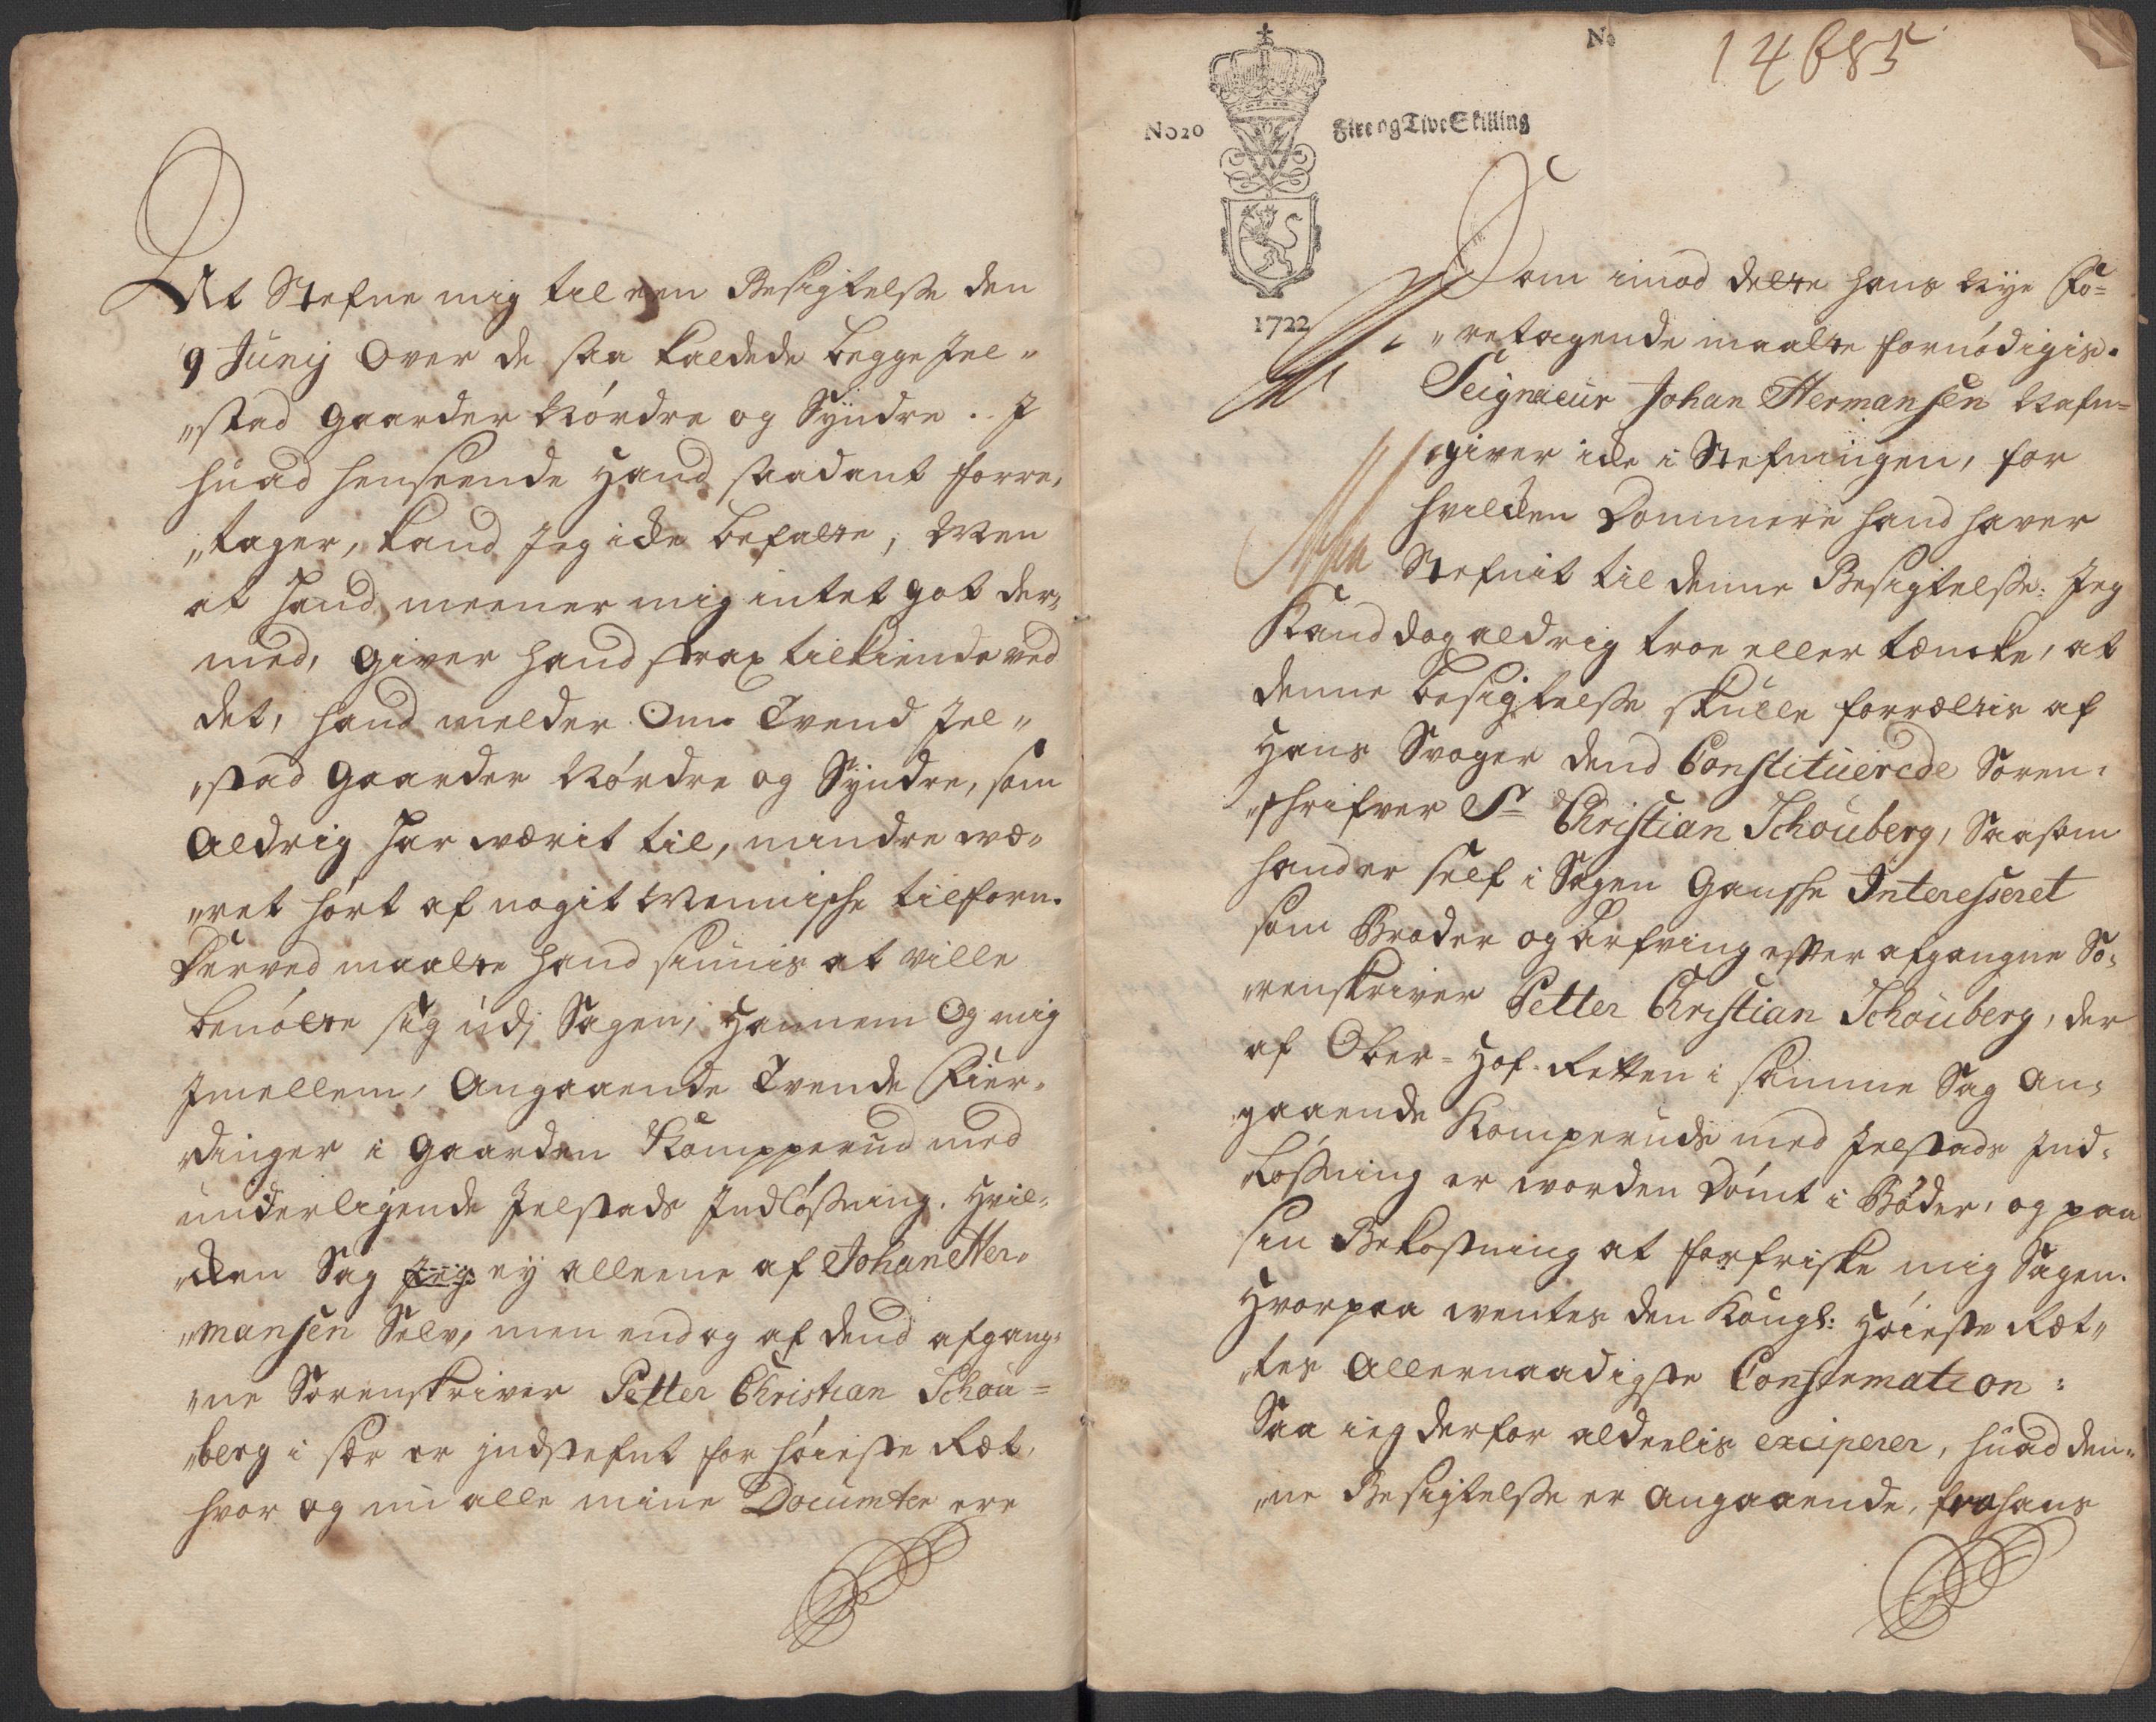 At Stefne mig til een Besigtelsse den
9 Junij Over de saa kaldede begge Jel„
„stad Gaarder Nórdre og Syndre . I
huad henseende Hand saadant forre„
„tager, kand Jeg icke befatte, Men
at Hand meener mig intet got der„
med, Giver Hand strax tilkiende ved
det, hand melder Om Tvend Jel„
„stad Gaarder Nórdre og Syndre, som
Aldrig har wærit til, mindre wæ„
„ret hórt af nogit Menniske tilforn.
Derved maatte Hand siunis at ville
benótte sig udj Sagen, Hannem Og mig
Imellem, Angaaende Tvende Fier„
„dinger i Gaarden Kompperud med
underligende Jelstads Indlósning. Hvil„
„cken Sag Jeg ey alleene af Johan Her„
„mansen Selv, men endog af dend afgang„
„ne Sorenskriver Petter Christian Schou=
„berg i sær er indstefnt for höieste Ræt,
hvor og nu alle mine Documter ere
N.
14685
No20
Fire og Tive Skilling
1722
Som imod dette hans Nye Fo=
„retagende maatte fornódigis.
Seigneur Johan Hermansen Nafn=
„giver icke i Stefningen, for
hvilcken Dommere hand haver
Stefnit til denne Besigtelsse: Jeg
Kand dog aldrig troe eller tæncke, at
denne besigtelsse skulle forrættis af
Hans Svoger dend Constituerede Soren„
„schrifver Sr Christian Schouberg, Saasom
hand er self i Sagen Ganske Interesseret
som Broder og Arfving efter afgangne So„
„renskriver Petter Christian Schouberg, der
af Ober=Hof-Retten i samme Sag An„
„gaaende Komperuds med Jelstads Ind„
„lósning er worden Dómt i Bóder, og paa
sin Bekostning at forfriske mig Sagen.
Hvorpaa wentes den Kongl: Höieste Ræt„
„tes Allernaadigste Confermation:
Saa ieg derfor aldeelis exciperer, huad den„
„ne Besigtelsse er Angaaende, fra hans